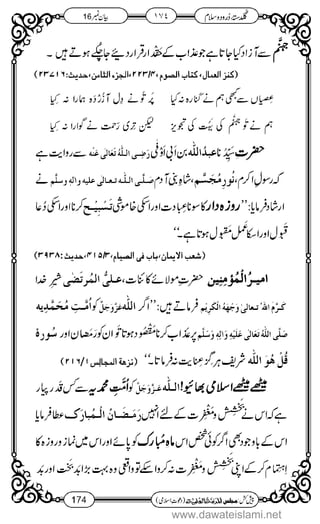 گلدستۂ درود و سلام ١٧٤ بیان نمبر 16
جہنّم سے آزاد کیا جاتا ہے جو عذاب کے حقدار قرار دیئے جا چکے ہوتے ہیں ۔
(کنز العمال، کتاب الصوم، ٢٢٣/٣، الجزء الثامن، حدیث: ٢٣٧١٦)
عصیاں سے کبھی ہم نے کنارا نہ کیا پر تُو نے دل آزُردہ ہمارا نہ کیا
ہم نے تو جہنّم کی بہت کی تجویز لیکن تری رحمت نے گوارا نہ کیا
حضرت سیّدنا عبداللہ بن اَبِی اَوْفٰی رَضِیَ اللہُ تَعَالٰی عَنْہ سے روایت ہے
کہ رسولِ اکرم، نُورِ مُجَسَّم، شاہِ بنی آدم صَلَّی اللہُ تعالٰی علیہ واٰلہ وسلَّم نے
ارشاد فرمایا: ’’روزہ دار کا سونا عبادت اور اسکی خاموشی تَسْبِیْح کرنا اور اسکی دُعا
قَبول اور اسکا عمل مقبول ہوتا ہے۔‘‘
(شعب الایمان، باب فی الصیام، ٤١٥/٣، حدیث: ٣٩٣٨)
امیرُ الْمُؤْمِنِین حضرتِ مولائے کائنات، علیُّ الْمُرتَضٰی شیرِ خدا
کَرَّمَ اللہُ تعالٰی وَجْہَہُ الْکَرِیْم فرماتے ہیں: ’’اگر اللہ عَزَّوَجَلَّ کو اُمَّتِ مُحَمَّدِیہ
صَلَّی اللہُ تَعَالٰی عَلَیْہِ وَاٰلِہٖ وَسَلَّم پر عذاب کرنا مقصود ہوتا تو ان کو رَمَضان اور سُورہ
قُلْ ھُوَ اللہ شریف ہرگز عنایت نہ فرماتا۔‘‘ (نزھۃ المجالس ٢١٦/١)
میٹھے میٹھے اسلامی بھائیو! اللہ عَزَّوَجَلَّ کو اُمَّتِ محمدِیہ سے کس قدر پیار
ہے کہ اس نے بخشش و مغفرت کے لئے انہیں رَمَضَانُ الْمُبارَک عطا فرمایا
اس کے باوجود بھی اگر کوئی شخص اس ماہِ مُبارک کو پائے اور اس میں نماز و روزہ کا
اہتمام کر کے اپنی بخشش و مغفرت نہ کروا سکے تو وہ واقعی بہت بڑا بَدبَخت اور در بدر
پیش کش مجلس اَلْمَدِیْنَۃُ الْعِلْمِیَّۃ (دعوتِ اسلامی) 174
www.dawateislami.net